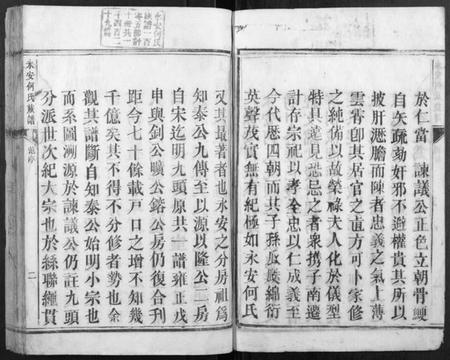 於仁當　諫議公正色立朝骨鯁
自矢疏劾奸邪不避權貴其所以
披肝瀝膽而陳者忠義之氣上薄
雲霄卽其居官之直方可卜家修
之純備以故榮祿夫人化於儀型
特具遠見恐忌之者衆携子南遷
計存宗祀以孝全忠以仁成義至
今代歷四朝而其子孫瓜瓞綿衍
英聲茂實無有紀極如永安何氏
又其最著者也永安之分房祖爲
知泰公九傳至以源以隆公二房
自宋迄明九頭原共一譜雍正戊
申與釗公曠公鎔公房仍復合刋
距今七十餘載戸口之增不知幾
千億矣其不得不分修者勢也余
觀其譜斷自知泰公始明小宗也
而系圖溯源於諫議公仍註九頭
分派世次紀大宗也於絲聯繩貫
永安何氏族譜
二
永安何氏